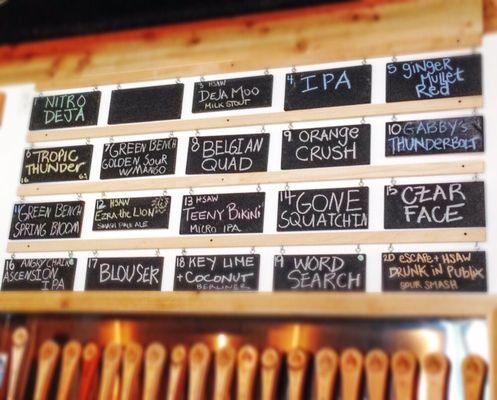 1 NITRO
DEJA
3 HSAW
DEJA MOO
MILK STOUT
4 IPA
5 GINGER
MULLET
RED
6 TROPIC
THUNDER
7 GREEN BENCH
GOLDEN SOUR
W/MANGO
8 BELGIAN
QUAD
9 ORANGE
CRUSH
10 GABBY'S
THUNDERBOLT
11 GREEN BENCH
SPRING BLOOM
12 HSAW
EZRA THE LION
SMASH PALE ALE
13 HSAW
TEENY BIKINI
MICRO IPA
14 GONE
SQUATCHIN
15 CZAR
FACE
16 ANGRY CHAIR
ASCENSION
IPA
17 BLOUSER
18 KEY LIME
+ COCONUT
BERLINER
19 WORD
SEARCH
20 ESCAPE + HSAW
DRUNK IN PUBLIX
SOUR SMASH